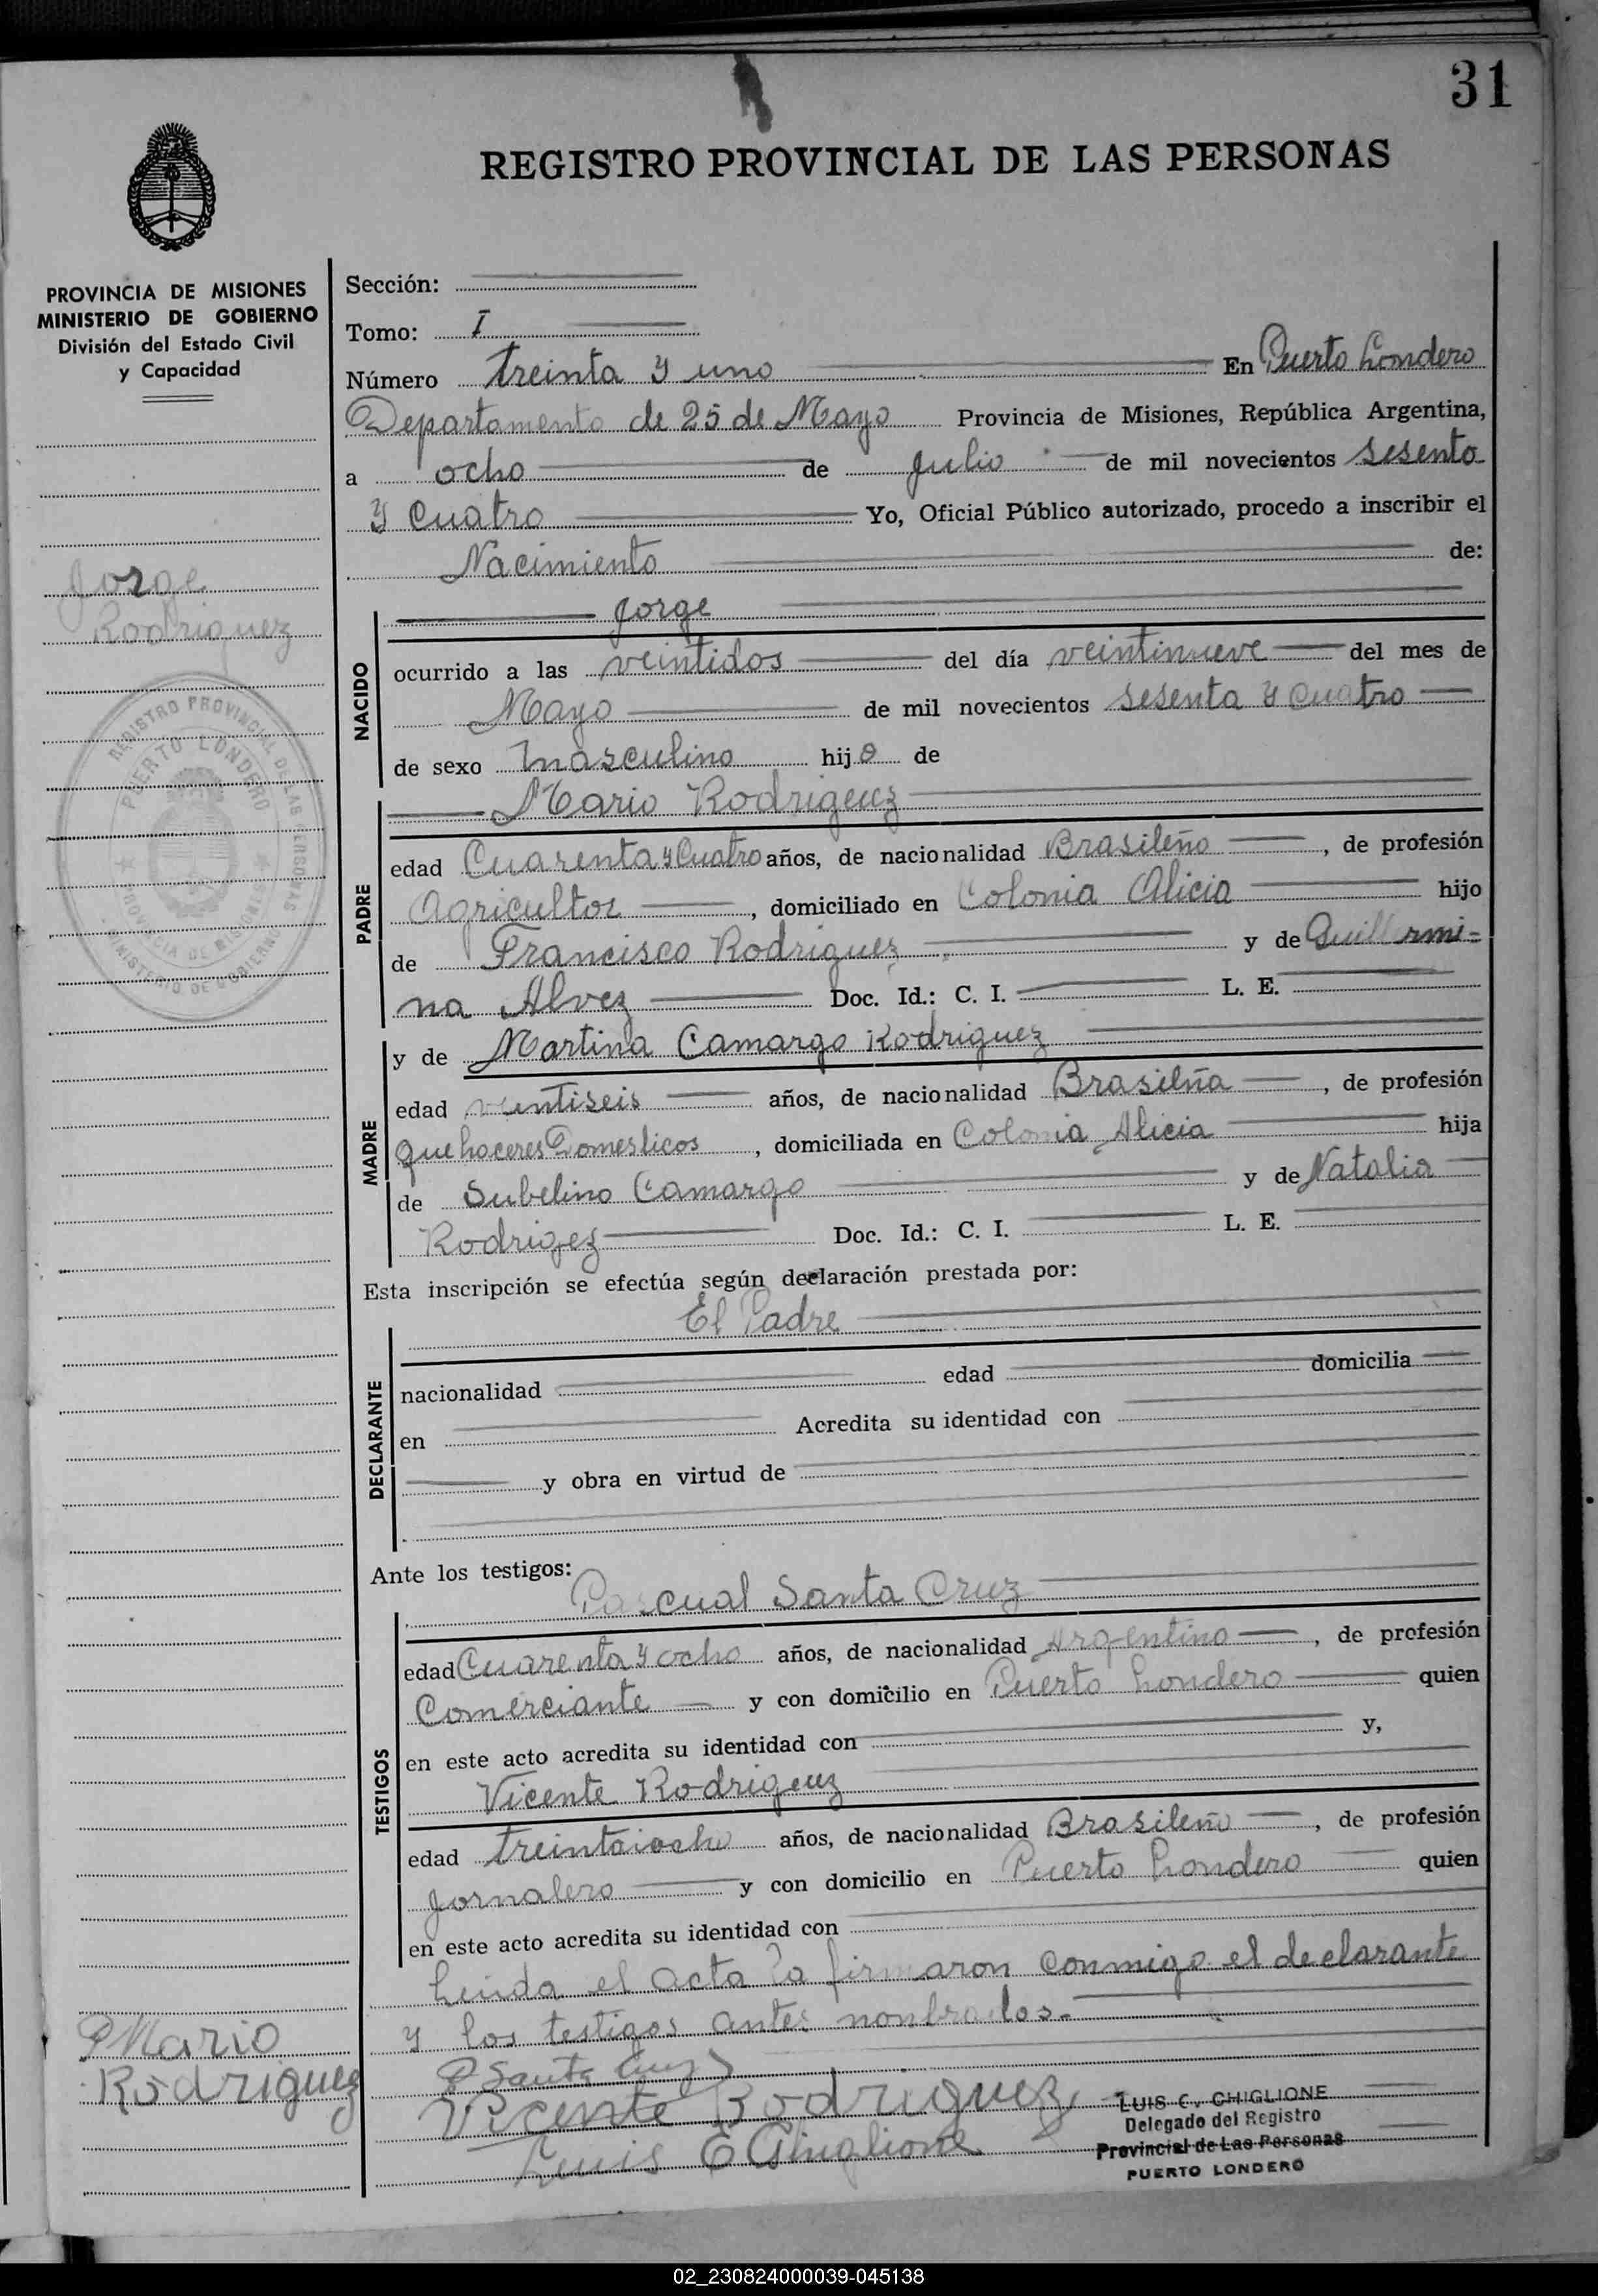 31
REGISTRO PROVINCIAL DE LAS PERSONAS
PROVINCIA DE MISIONES
MINISTERIO DE GOBIERNO
División del Estado Civil
y Capacidad
Jorge
Rodriguez
REGISTRO PROVINCIAL DE LAS PERSONAS
PUERTO LONDERO
PROVINCIA DE MISIONES
MINISTERIO DE GOBIERNO
Sección:
Tomo: I
Número treinta y uno En Puerto Londero
Departamento de 25 de Mayo Provincia de Misiones, República Argentina,
a ocho de Julio de mil novecientos sesenta
y Cuatro Yo, Oficial Público autorizado, procedo a inscribir el
Nacimiento de:
Jorge
NACIDO
ocurrido a las veintidos del día veintinueve del mes de
Mayo de mil novecientos sesenta y Cuatro
de sexo Masculino hijo de
Mario Rodrigeuz
PADRE
edad Cuarenta y Cuatro años, de nacionalidad Brasileño, de profesión
Agricultor, domiciliado en Colonia Alicia hijo
de Francisco Rodriguez y de Guillermi=
na Alvez Doc. Id.: C. I. L. E.
y de Martina Camargo Rodriguez
MADRE
edad ventiseis años, de nacionalidad Brasilña, de profesión
quehaceres Domesticos, domiciliada en Colonia Alicia hija
de Subelino Camargo y de Natalia
Rodrigez Doc. Id.: C. I. L. E.
Esta inscripción se efectúa según declaración prestada por:
El Padre
DECLARANTE
nacionalidad edad domicilia
en Acredita su identidad con
y obra en virtud de
Ante los testigos:
Pascual Santa Cruz
TESTIGOS
edad Cuarenta y ocho años, de nacionalidad Argentino, de profesión
Comerciante y con domicilio en Puerto Londero quien
en este acto acredita su identidad con y,
Vicente Rodrigeuz
edad treintaiocho años, de nacionalidad Brasileño, de profesión
Jornalero y con domicilio en Puerto Londero quien
en este acto acredita su identidad con
Leida el acta la firmaron conmigo el declarante
y los testigos antes nonbrados.
P Mario
Rodriguez
P Santa Cruz
Vicente Rodriguez
Luis C Ghiglione
LUIS C. GHIGLIONE
Delegado del Registro
Provincial de Las Personas
PUERTO LONDERO
02_230824000039-045138